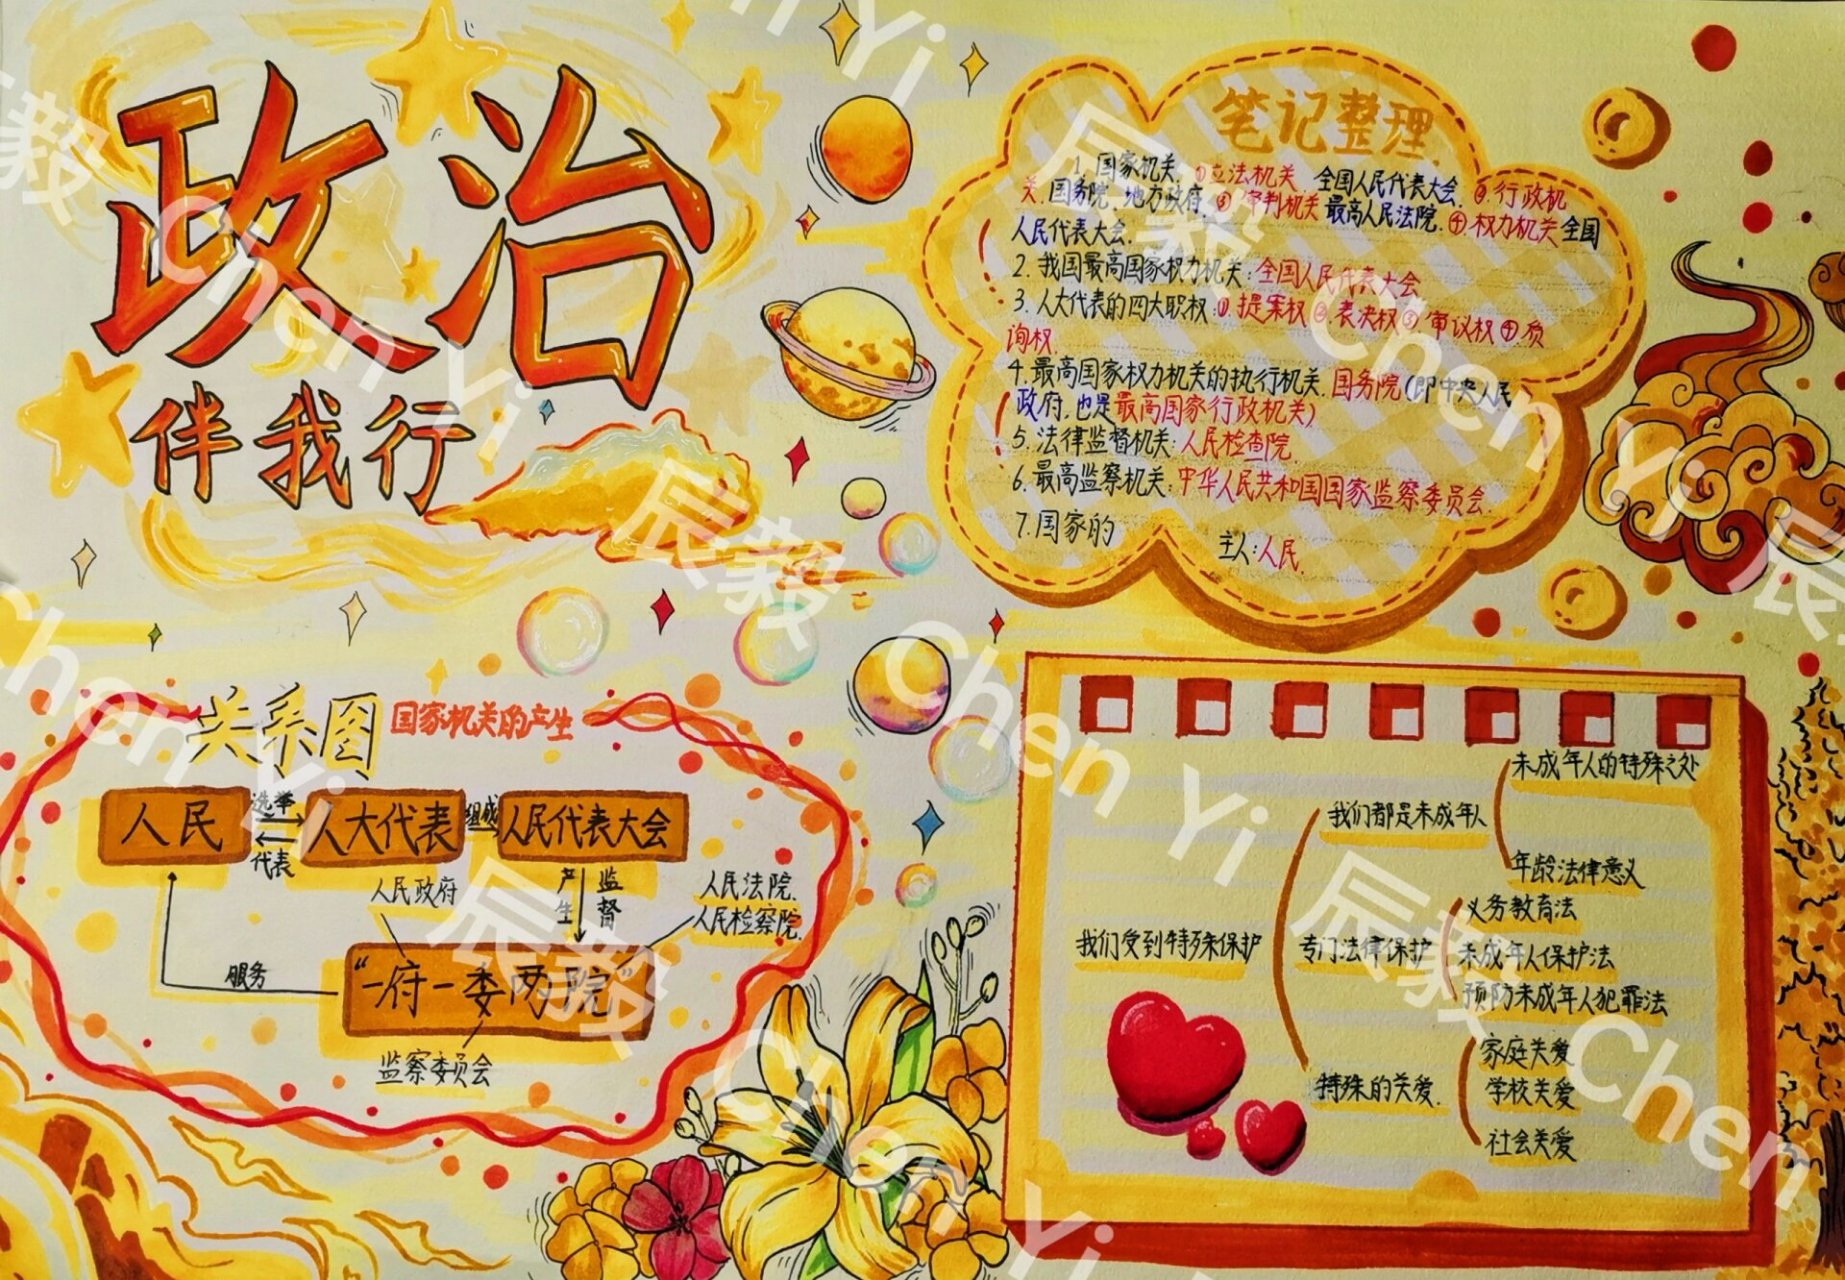 政治
伴我行
笔记整理.
1. 国家机关. ①立法机关 全国人民代表大会. ②.行政机
关. 国务院 地方政府. ③ 审判机关 最高人民法院. ④ 权力机关 全国
人民代表大会.
2. 我国最高国家权力机关: 全国人民代表大会
3. 人大代表的四大职权: ①. 提案权 ②. 表决权 ③. 审议权 ④ 质
询权.
4. 最高国家权力机关的执行机关. 国务院 (即中央人民
政府. 也是最高国家行政机关)
5. 法律监督机关: 人民检查院.
6. 最高监察机关: 中华人民共和国国家监察委员会.
7. 国家的 主人: 人民.
关系图 国家机关的产生
人民 选举 代表 人大代表 组成 人民代表大会
人民政府 产生 监督 人民法院.
人民检察院.
服务 “一府一委两院”
监察委员会
未成年人的特殊之处
我们都是未成年人
年龄法律意义
义务教育法
我们受到特殊保护 专门法律保护 未成年人保护法
预防未成年人犯罪法
家庭关爱
特殊的关爱. 学校关爱
社会关爱
辰毅 Chen Yi
辰毅 Chen Yi
辰毅 Chen Yi
辰毅 Chen Yi
辰毅 Chen